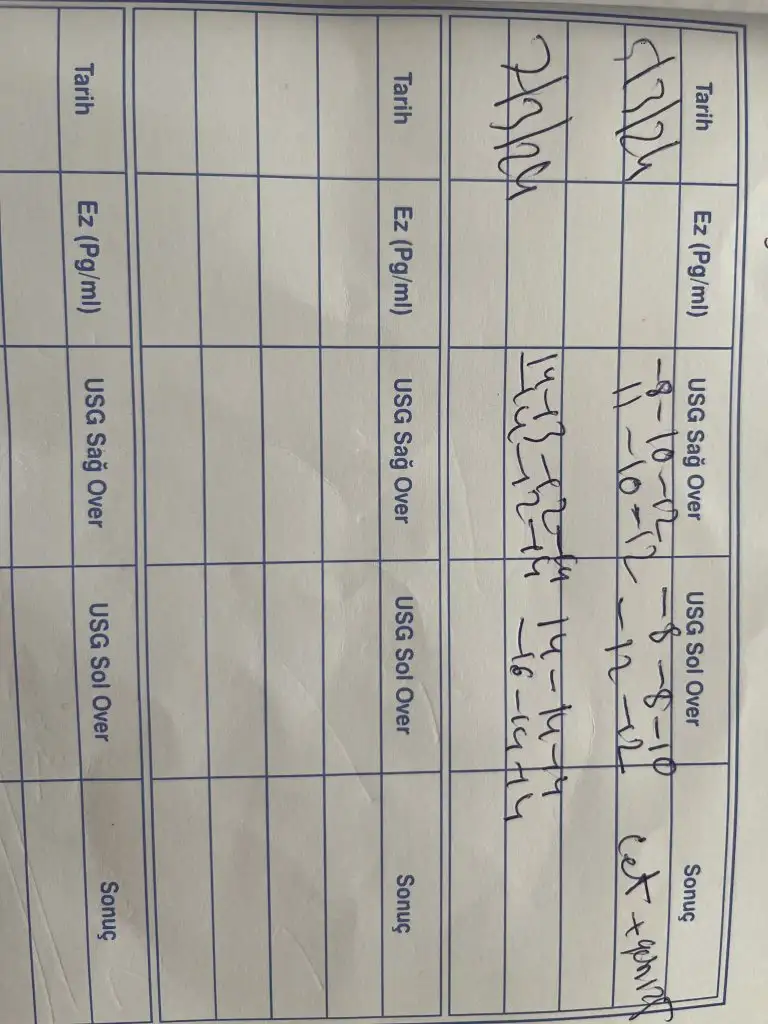 Tarih Ez (Pg/ml) USG Sağ Over USG Sol Over Sonuç
5/3/24 -8-10-12 -8-8-10 Cet +
11-10-12 -12-12
7/3/24 14-13-12-14 14-14-14
-14-12-14 -16-14-14
Tarih Ez (Pg/ml) USG Sağ Over USG Sol Over Sonuç
Tarih Ez (Pg/ml) USG Sağ Over USG Sol Over Sonuç